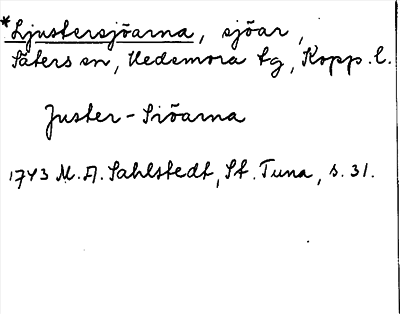 *Ljustersjöarna, sjöar,
Säters sn, Hedemora tg, Kopp. l.
Juster-Siöarna
1743 M. A. Sahlstedt, St. Tuna, s. 31.